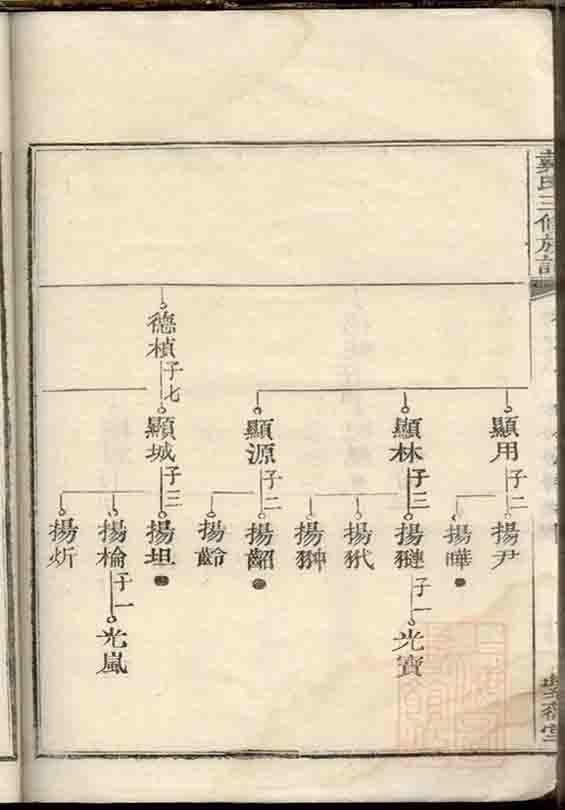 氏三修族譜
德楨
子七
顯用
子二
顯林
子三
顯源
子二
顯城
子三
揚尹
揚曄
揚𦑣
子一
揚玳
揚翀
揚齠
揚齡
揚坦
揚棆
子一
揚炘
光寶
光嵐
堂